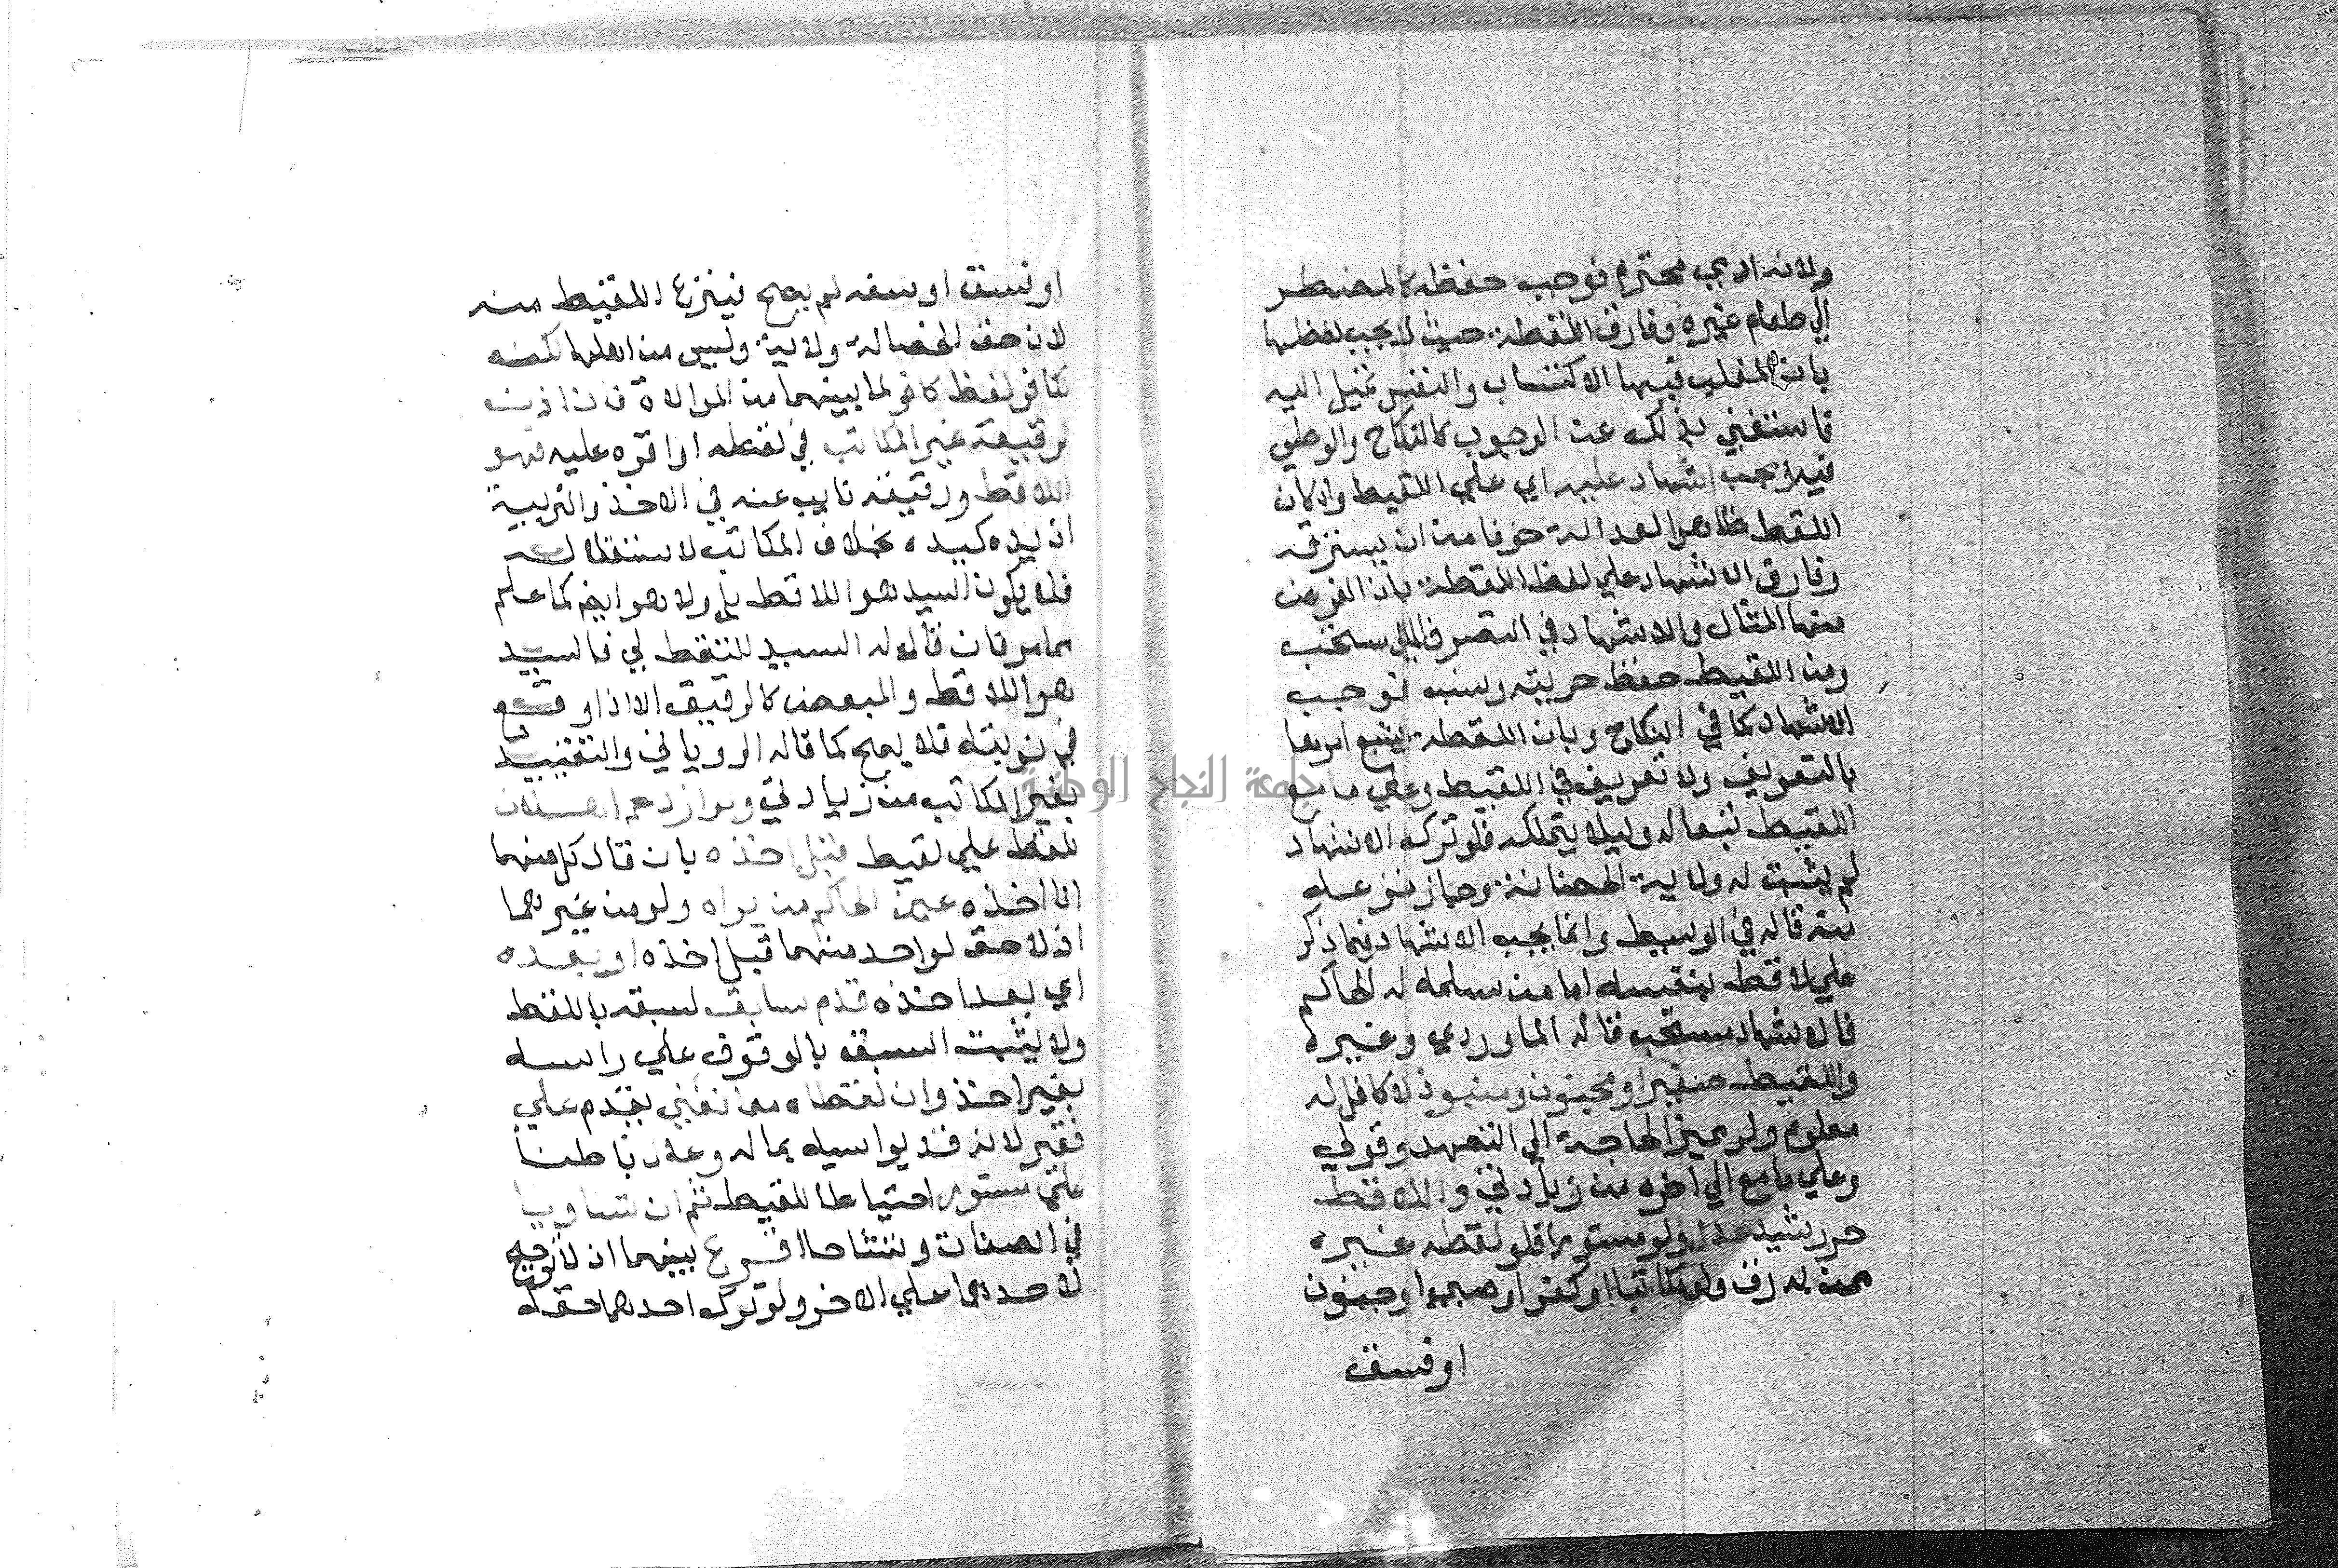 ولانه ادمي محترم فوجب حفظه كالمضطر
الي طعام غيره وفارق اللقطة حيث لا يجب لفظها
بان المغلب فيها الاكتساب والنفس تميل اليه
فاستغني بذلك عن الوجوب كالنكاح والوطي
فيه يجب اشهاد عليه اي علي اللقيط وان كان
اللقط ظاهر العدالة خوفا من ان يسترقه
وفارق الاشهاد علي لقط اللقطة بان الغرض
منها المال والاشهاد في التصرف المالي مستحب
ومن اللقيط حفظ حريته ونسبه فوجب
الاشهاد كما في النكاح وبان اللقطة يشيع امرها
بالتعريف ولا تعريف في اللقيط وعلي ما مع
اللقيط تبعا له وليلا يتملكه فلو ترك الاشهاد
لم يثبت له ولاية الحضانة وجاز نزعه
منه قاله في الوسيط وانما يجب الاشهاد فيما ذكر
علي لاقط بنفسه اما من سلمه له الحاكم
فالاشهاد مستحب قاله الماوردي وغيره
واللقيط صغير او مجنون منبوذ لا كافل له
معلوم ولو مميز الحاجة الي التعهد وقولي
وعلي ما مع الي اخره من زيادتي واللاقط
حر رشيد عدل ولو مستورا فلو لقطه غيره
ممن به رق ولو مكاتبا او كفر او صبي او جنون
او فسق
او فسق او سفه لم يصح فينزع اللقيط منه
لان حق الحضانة ولاية وليس من اهلها لكنه
لكافر لقط كافر لما بينهما من الموالاة فان اذن
لرقيقه غير المكاتب في لقطه او اقره عليه فهو
اللاقط ورقيقه نايب عنه في الاخذ والتربية
اذ يده كيده بخلاف المكاتب لاستقلاله
فلا يكون السيد هو اللاقط بل ولا هو ايضا كما علم
مما مر فان قال له السيد التقط لي فالسيد
هو اللاقط والمبعض كالرقيق الا اذا وقع
في نوبته فلا يصح كما قاله الروياني والتقييد
بغير المكاتب من زيادتي ولو ازدحم اهلان
للقط علي لقيط قبل اخذه بان قال كل منهما
انا اخذه عين الحاكم من يراه ولو من غيرهما
اذ لا حق لواحد منهما قبل اخذه او بعده
اي بعد اخذه قدم سابق لسبقه باللقط
ولا يثبت السبق بالوقوف علي راسه
بغير اخذ وان لقطاه معا فغني يقدم علي
فقير لانه قد يواسيه بماله وعدل باطنا
علي مستور احتياطا للقيط ثم ان تساويا
في الصفات وتشاحا اقرع بينهما اذ لا ترجيح
لاحدهما علي الاخر ولو ترك احدهما حقه
جامعة النجاح الوطنية